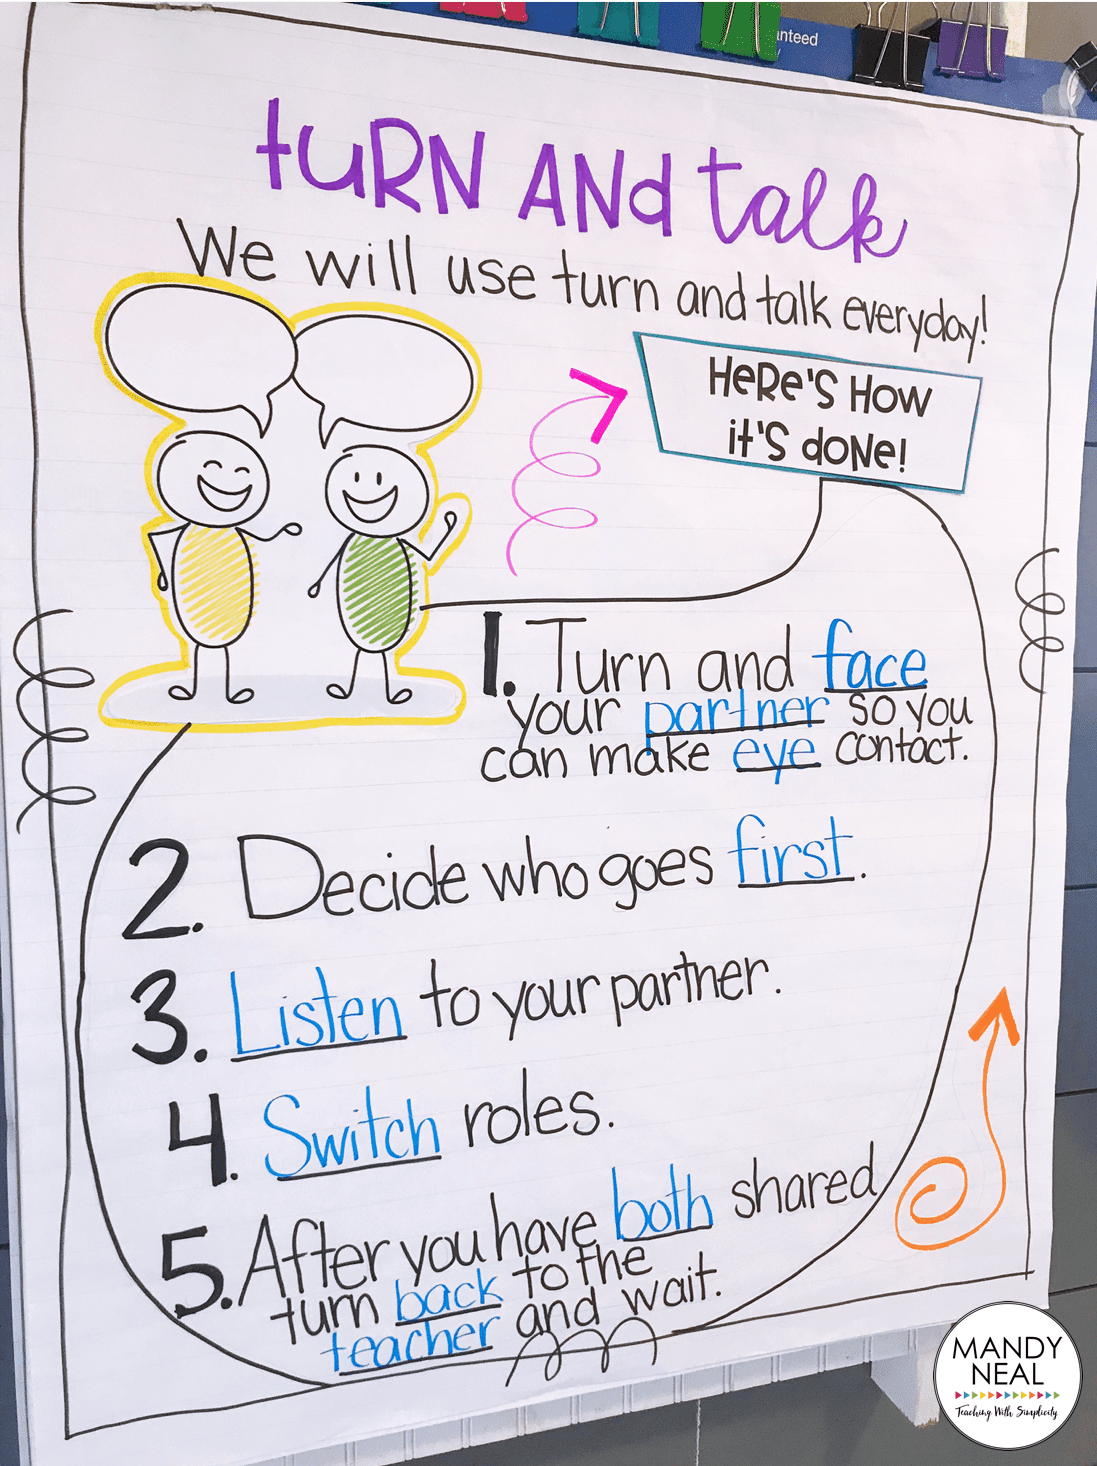 anteed
tuRN ANd talk
We will use turn and talk everyday!
HeRe's How
it's doNe!
1. Turn and face
your partner so you
can make eye contact.
2. Decide who goes first.
3. Listen to your partner.
4. Switch roles.
5. After you have both shared
turn back to the
teacher and wait.
MANDY
NEAL
Teaching With Simplicity